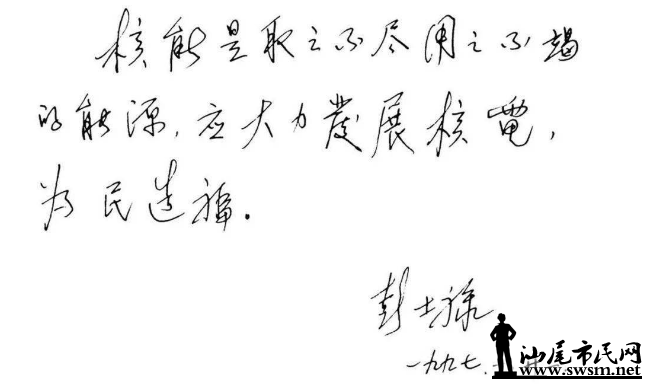 核能是取之不尽用之不竭
的能源，应大力發展核電，
为民造福．
彭士禄
一九九七．
汕尾市民网
www.swsm.net